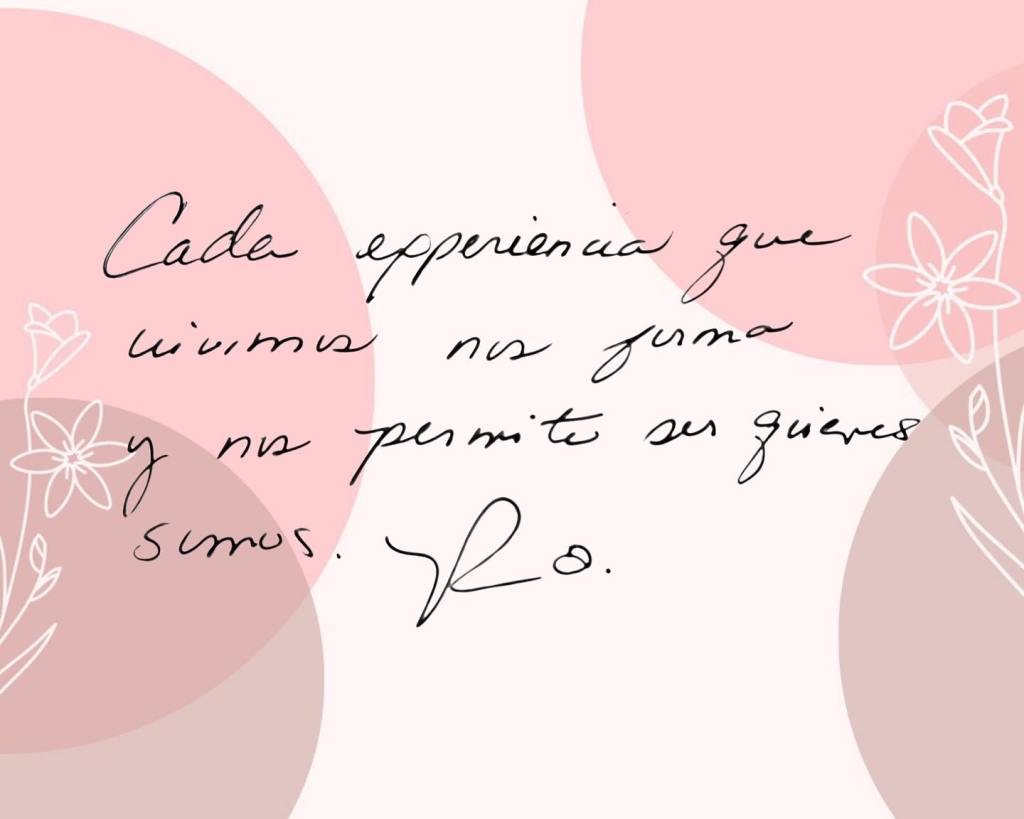 Cada experiencia que
vivimos nos forma
y nos permite ser quienes
somos. Ro.